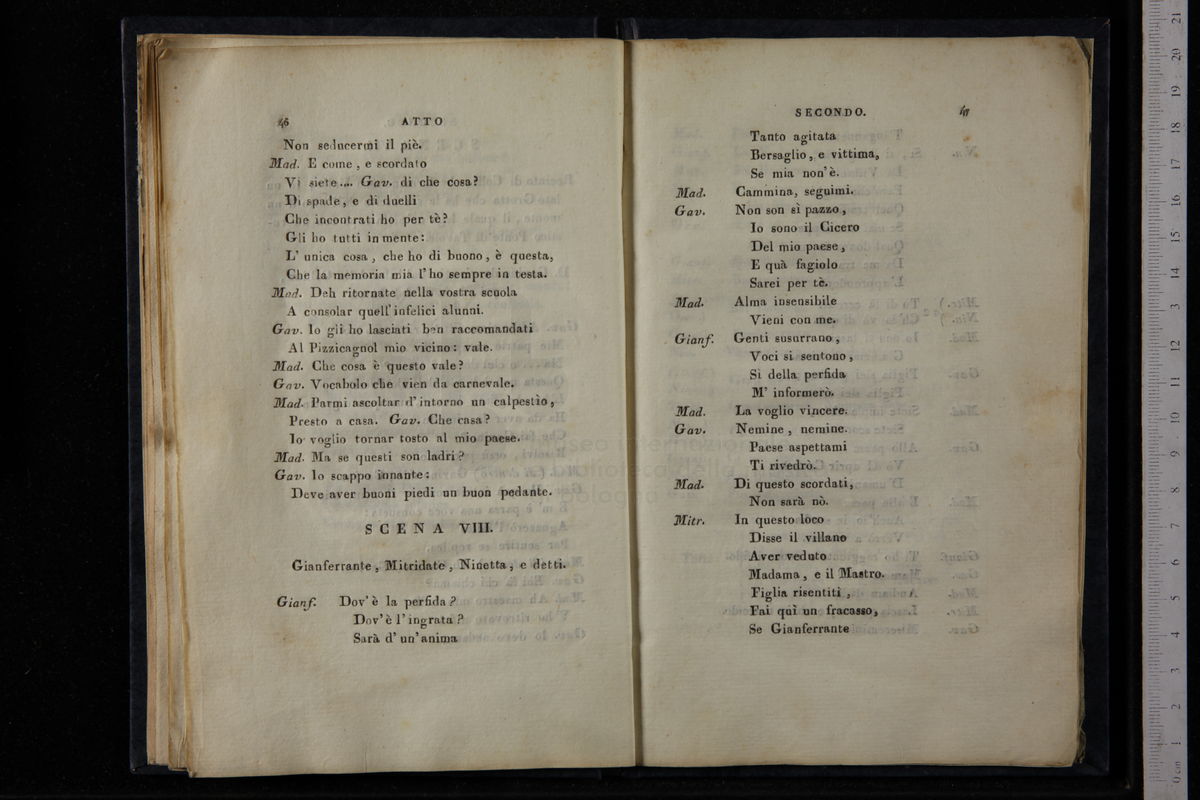 46 ATTO
Non sedncermi il piè.
Mad. E come, e scordato
Vi siete.... Gav. di che cosa?
Di spade, e di duelli
Che incontrati ho per tè?
Gli ho tutti in mente:
L' unica cosa, che ho di buono, è questa,
Che la memoria mia l'ho sempre in testa.
Mad. Deh ritornate nella vostra scuola
A consolar quell' infelici alunni.
Gav. Io gli ho lasciati ben raccomandati
Al Pizzicagnol mio vicino: vale.
Mad. Che cosa è questo vale?
Gav. Vocabolo che vien da carnevale.
Mad. Parmi ascoltar d'intorno un calpestìo,
Presto a casa. Gav. Che casa?
Io voglio tornar tosto al mio paese.
Mad. Ma se questi son ladri?
Gav. Io scappo innante:
Deve aver buoni piedi un buon pedante.
SCENA VIII.
Gianferrante, Mitridate, Ninetta, e detti.
Gianf. Dov'è la perfida?
Dov'è l'ingrata?
Sarà d' un' anima
SECONDO. 47
Tanto agitata
Bersaglio, e vittima,
Se mia non'è.
Mad. Cammina, seguimi.
Gav. Non son sì pazzo,
Io sono il Cicero
Del mio paese,
E quà fagiolo
Sarei per tè.
Mad. Alma insensibile
Vieni con me.
Gianf. Genti susurrano,
Voci si sentono,
Si della perfida
M' informerò.
Mad. La voglio vincere.
Gav. Nemine, nemine.
Paese aspettami
Ti rivedrò.
Mad. Di questo scordati,
Non sarà nò.
Mitr. In questo loco
Disse il villano
Aver veduto
Madama, e il Mastro.
Figlia risentiti,
Fai quì un fracasso,
Se Gianferrante